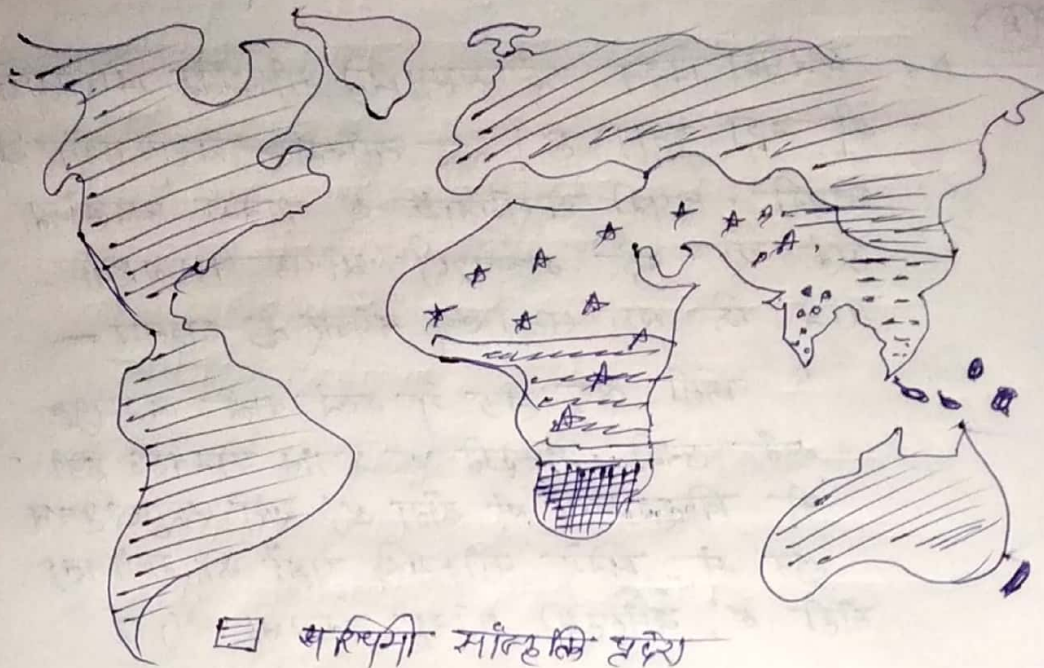 पश्चिमी सांस्कृति प्रदेश